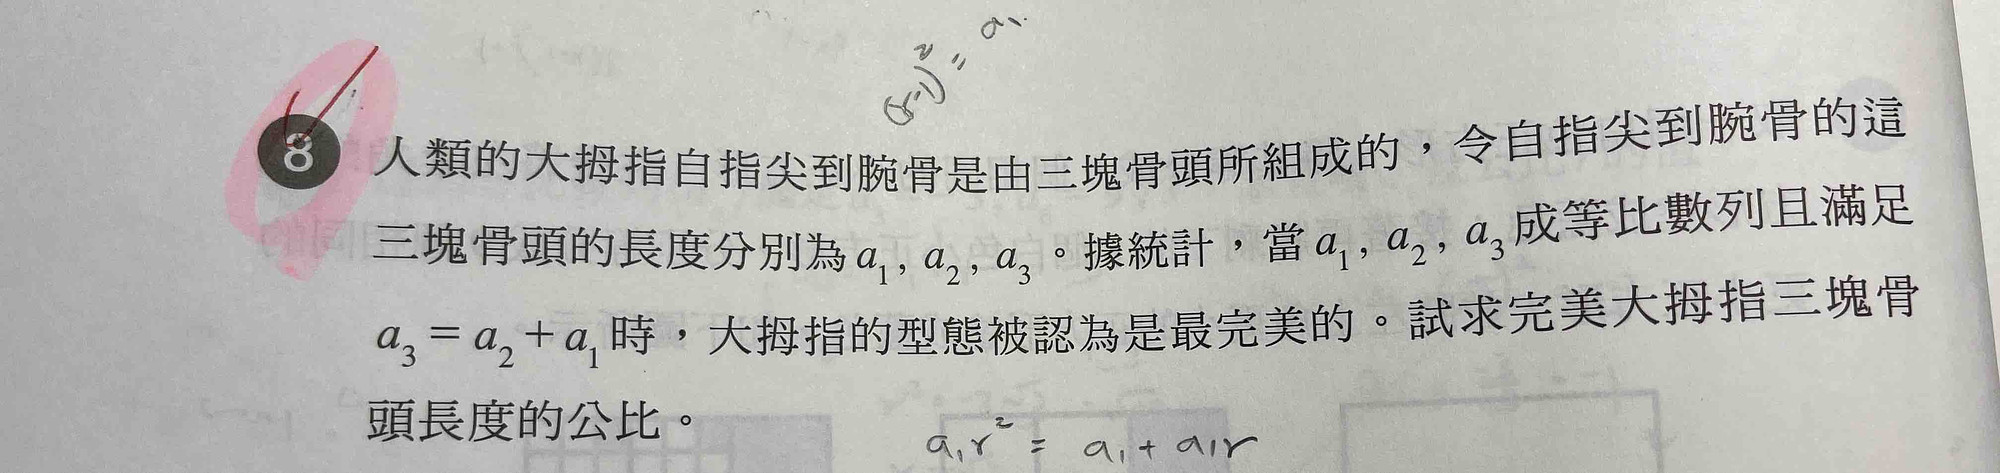 (r-1)² = a₁
8 人類的大拇指自指尖到腕骨是由三塊骨頭所組成的，令自指尖到腕骨的這
三塊骨頭的長度分別為 a₁, a₂, a₃。據統計，當 a₁, a₂, a₃ 成等比數列且滿足
a₃ = a₂ + a₁ 時，大拇指的型態被認為是最完美的。試求完美大拇指三塊骨
頭長度的公比。
a₁r² = a₁ + a₁r